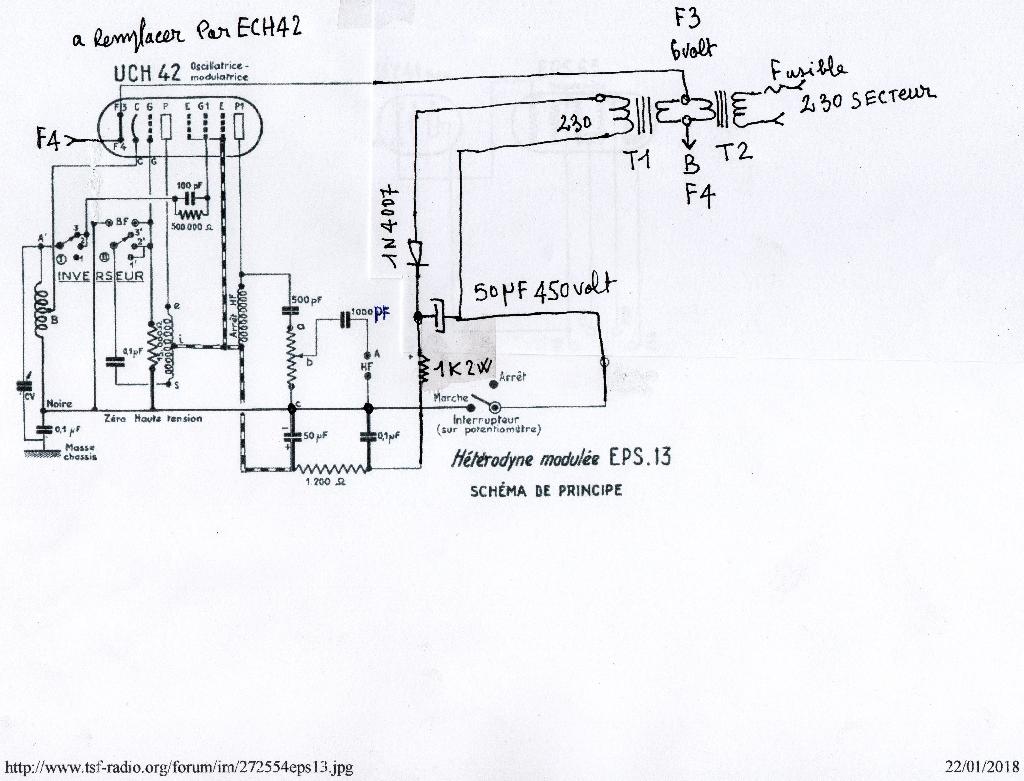 a Remplacer Par ECH42
F3
6volt
UCH 42 Oscillatrice-modulatrice
Fusible
230 SECTEUR
F3 C G P E G1 E P1
F4
F4
C G
230
T1
B
F4
T2
100 pF
500.000 Ω
1N4007
A'
3
2
1
I
B.F
II
3'
2'
1'
INVERSEUR
B
e
i
s
15.000 Ω
Arrêt HF
500 pF
1000 pF
50µF 450volt
a
b
c
A
HF
+
1K2W
0,1µF
CV
Noire
Zéro Haute tension
0,1 µF
Masse
chassis
Arrêt
Marche
Interrupteur
(sur potentiomètre)
–
+
50 µF
0,1µF
1.200 Ω
Hétérodyne modulée EPS.13
SCHÉMA DE PRINCIPE
http://www.tsf-radio.org/forum/im/272554eps13.jpg
22/01/2018